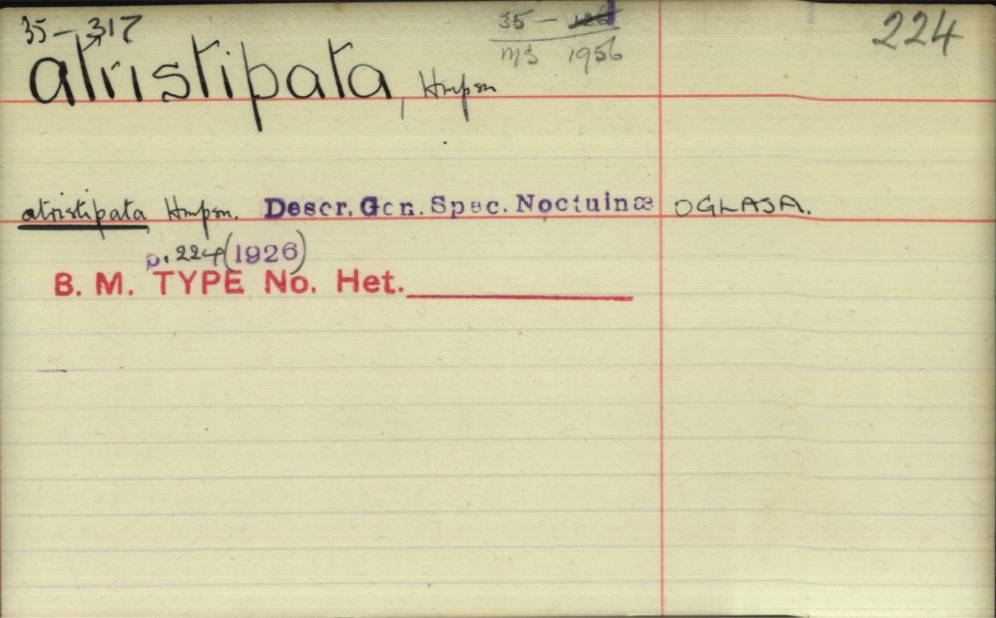 35-317
35 - 126
MS 1956
224
atristipata, Hmpsn
atristipata Hmpsn. Descr. Gen. Spec. Noctuinæ OGLASA.
p. 224 (1926)
B. M. TYPE No. Het.